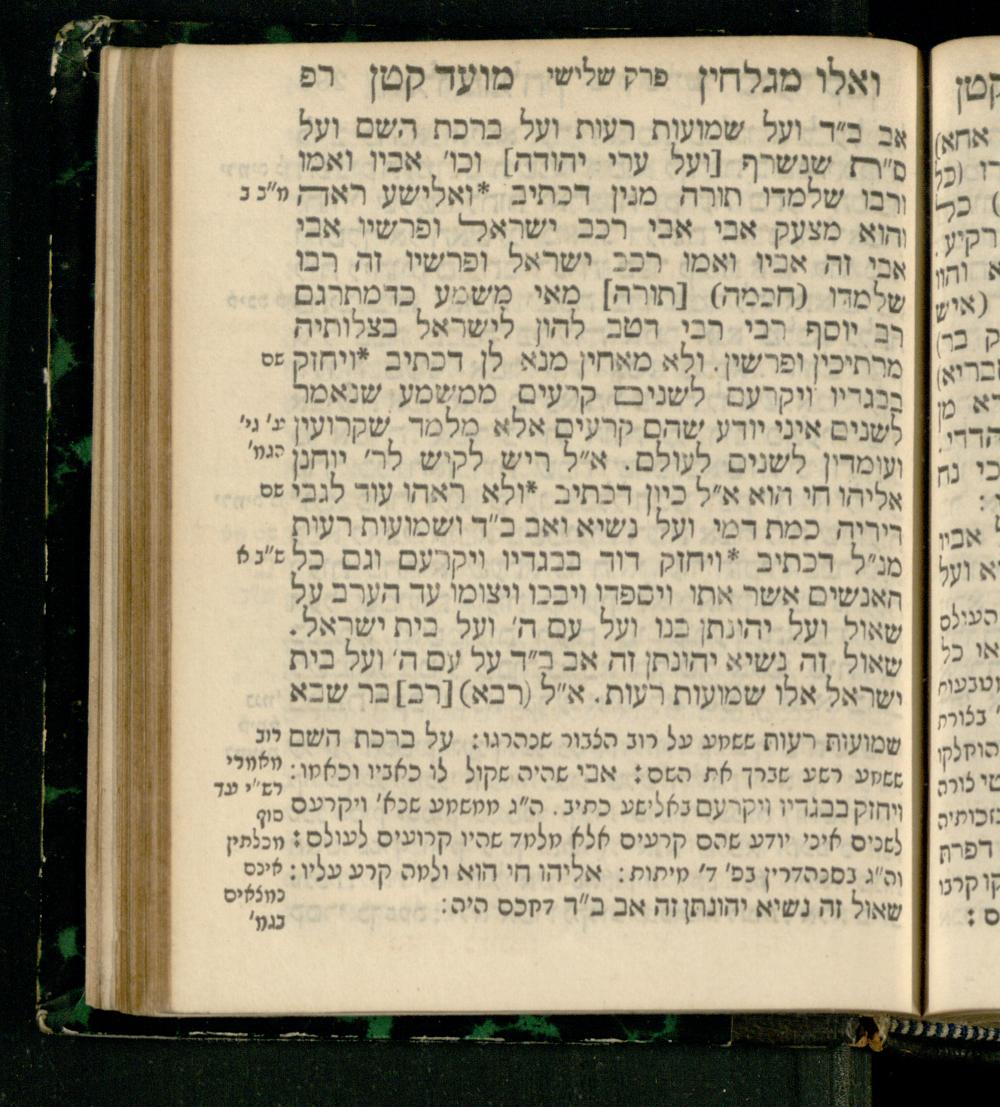 ואלו מגלחין פרק שלישי מועד קטן רפ
אב ב״ד ועל שמועות רעות ועל ברכת השם ועל
ס״ת שנשרף [ועל ערי יהודה] וכו׳ אביו ואמו
ורבו שלמדו תורה מנין דכתיב *ואלישע ראה
והוא מצעק אבי אבי רכב ישראל ופרשיו אבי
אבי זה אביו ואמו רכב ישראל ופרשיו זה רבו
שלמדו (חכמה) [תורה] מאי משמע כדמתרגם
רב יוסף רבי רבי דטב להון לישראל בצלותיה
מרתיכין ופרשין. ולא מאחין מנא לן דכתיב *ויחזק
בבגדיו ויקרעם לשנים קרעים ממשמע שנאמר
לשנים איני יודע שהם קרעים אלא מלמד שקרועין
ועומדין לשנים לעולם. א״ל ריש לקיש לר׳ יוחנן
אליהו חי הוא א״ל כיון דכתיב *ולא ראהו עוד לגבי
דידיה כמת דמי ועל נשיא ואב ב״ד ושמועות רעות
מנ״ל דכתיב *ויחזק דוד בבגדיו ויקרעם וגם כל
האנשים אשר אתו ויספדו ויבכו ויצומו עד הערב על
שאול ועל יהונתן בנו ועל עם ה׳ ועל בית ישראל.
שאול זה נשיא יהונתן זה אב ב״ד על עם ה׳ ועל בית
ישראל אלו שמועות רעות. א״ל (רבא) [רב] בר שבא
שמועות רעות ששמע על רוב הצבור שנהרגו: על ברכת השם
ששמע רשע שברך את השם: אבי שהיה שקול לו כאביו וכאמו:
ויחזק בבגדיו ויקרעם באלישע כתיב. ה״ג ממשמע שנא׳ ויקרעם
לשנים איני יודע שהם קרעים אלא מלמד שהיו קרועים לעולם:
וה״ג בסנהדרין בפ׳ ד׳ מיתות: אליהו חי הוא ולמה קרע עליו:
שאול זה נשיא יהונתן זה אב ב״ד דקכס היה:
מ״ב ב
שם
יג׳ גי׳
הגמ׳
שם
ש״ב א
רוב
מאמרי
רש״י עד
סוף
מכלתין
אינם
נמצאים
בגמ׳
קטן